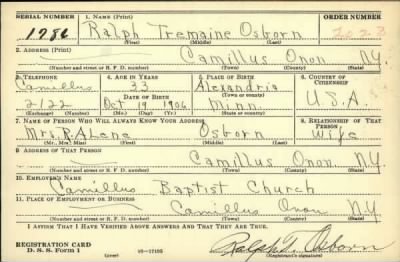 SERIAL NUMBER 1. NAME (Print) ORDER NUMBER
1786 Ralph Tremaine Osborn 2028
(First) (Middle) (Last)
2. ADDRESS (Print)
Camillus Onon. N.Y.
(Number and street or R. F. D. number) (Town) (County) (State)
3. TELEPHONE 4. AGE IN YEARS 5. PLACE OF BIRTH 6. COUNTRY OF CITIZENSHIP
Camillus 33 Alexandria
DATE OF BIRTH (Town or county)
2122 Oct 19 1906 Minn. U.S.A.
(Exchange) (Number) (Mo.) (Day) (Yr.) (State or country)
7. NAME OF PERSON WHO WILL ALWAYS KNOW YOUR ADDRESS 8. RELATIONSHIP OF THAT PERSON
Mrs. R. ALene Osborn Wife
(Mr., Mrs., Miss) (First) (Middle) (Last)
9. ADDRESS OF THAT PERSON
Camillus Onon. N.Y.
(Number and street or R. F. D. number) (Town) (County) (State)
10. EMPLOYER'S NAME
Camillus Baptist Church
11. PLACE OF EMPLOYMENT OR BUSINESS
Camillus Onon N.Y.
(Number and street or R. F. D. number) (Town) (County) (State)
I AFFIRM THAT I HAVE VERIFIED ABOVE ANSWERS AND THAT THEY ARE TRUE.
REGISTRATION CARD
D. S. S. Form 1 (over) Ralph T. Osborn
(Registrant's signature)